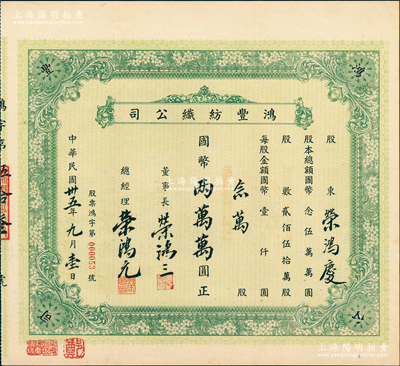 上海陽明拍賣
鴻豐紡織公司
股東 榮鴻慶
股本總額國幣念伍萬萬圓
股數貳佰伍拾萬股
每股金額國幣壹仟圓
念萬股
國幣兩萬萬圓正
董事長 榮鴻三
總經理 榮鴻元
股票鴻字第000053號
中華民國卅五年九月壹日